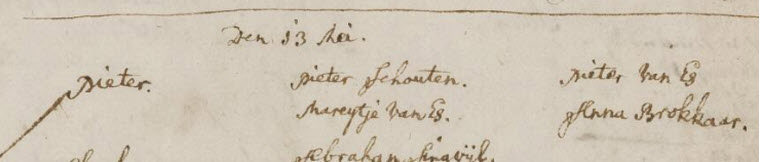 Den 13 Mei.
Pieter. Pieter Schouten. Pieter Van Es
Mareytje Van Es. Anna Brokkaar.
Abraham